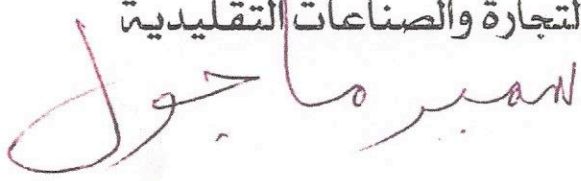 لتجارة والصناعات التقليدية
سمير ماجول